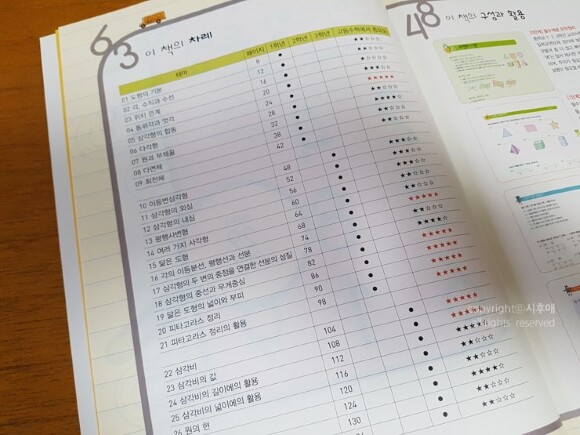 63 이 책의 차례
테마 페이지 1학년 2학년 3학년 고등수학에서 중요도
01 도형의 기본 8
02 각, 수직과 수선 12
03 위치 관계 16
04 동위각과 엇각 20
05 삼각형의 합동 24
06 다각형 28
07 원과 부채꼴 32
08 다면체 38
09 회전체 42
10 이등변삼각형 48
11 삼각형의 외심 52
12 삼각형의 내심 56
13 평행사변형 60
14 여러 가지 사각형 64
15 닮은 도형 68
16 각의 이등분선, 평행선과 선분 74
17 삼각형의 두 변의 중점을 연결한 선분의 성질 78
18 삼각형의 중선과 무게중심 82
19 닮은 도형의 넓이와 부피 86
20 피타고라스 정리 90
21 피타고라스 정리의 활용 98
22 삼각비 104
23 삼각비의 값 108
24 삼각비의 길이에의 활용 112
25 삼각비의 넓이에의 활용 116
26 원의 현 120
124
130
48 이 책의 구성과 활용
copyrightⓒ시후애
rights reserved